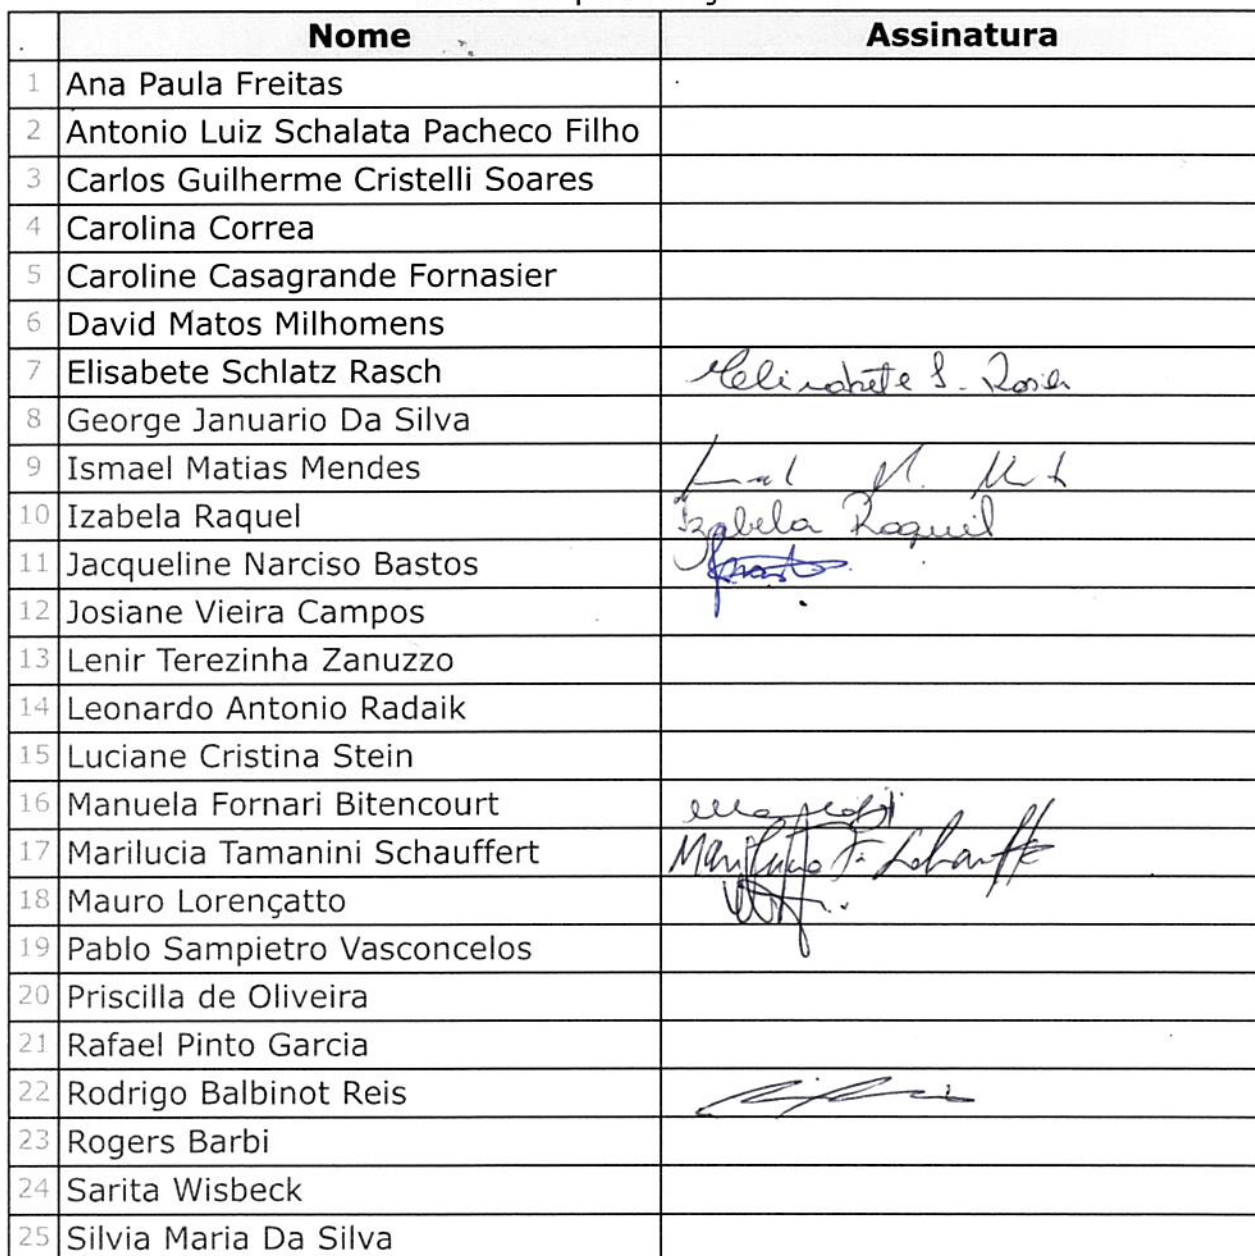 Nome Assinatura
1 Ana Paula Freitas
2 Antonio Luiz Schalata Pacheco Filho
3 Carlos Guilherme Cristelli Soares
4 Carolina Correa
5 Caroline Casagrande Fornasier
6 David Matos Milhomens
7 Elisabete Schlatz Rasch
8 George Januario Da Silva
9 Ismael Matias Mendes
10 Izabela Raquel Izabela Raquel
11 Jacqueline Narciso Bastos
12 Josiane Vieira Campos
13 Lenir Terezinha Zanuzzo
14 Leonardo Antonio Radaik
15 Luciane Cristina Stein
16 Manuela Fornari Bitencourt
17 Marilucia Tamanini Schauffert
18 Mauro Lorençatto
19 Pablo Sampietro Vasconcelos
20 Priscilla de Oliveira
21 Rafael Pinto Garcia
22 Rodrigo Balbinot Reis
23 Rogers Barbi
24 Sarita Wisbeck
25 Silvia Maria Da Silva